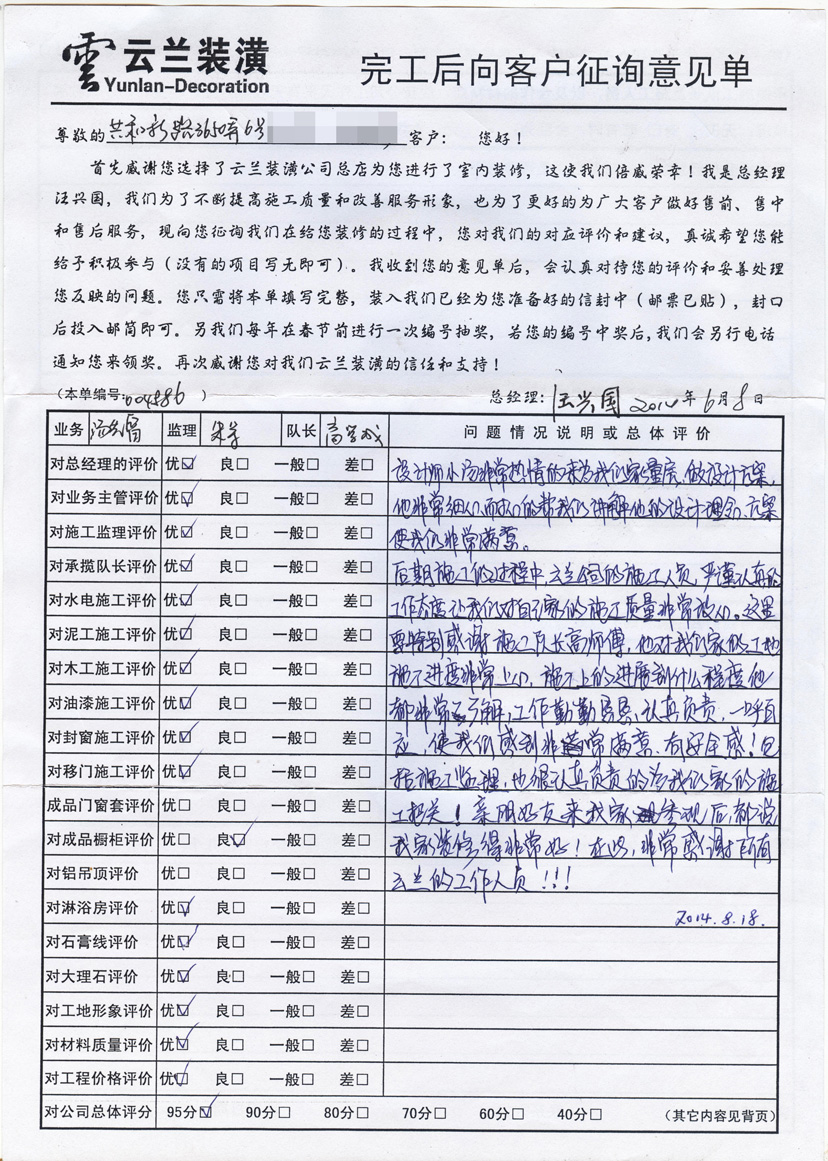 雲 云兰装潢
Yunlan-Decoration
完工后向客户征询意见单
尊敬的 共和新路3650弄6号 客户： 您好！
首先感谢您选择了云兰装潢公司总店为您进行了室内装修，这使我们倍感荣幸！我是总经理
汪兴国，我们为了不断提高施工质量和改善服务形象，也为了更好的为广大客户做好售前、售中
和售后服务，现向您征询我们在给您装修的过程中，您对我们的对应评价和建议，真诚希望您能
给予积极参与（没有的项目写无即可）。我收到您的意见单后，会认真对待您的评价和妥善处理
您反映的问题。您只需将本单填写完整，装入我们已经为您准备好的信封中（邮票已贴），封口
后投入邮筒即可。另我们每年在春节前进行一次编号抽奖，若您的编号中奖后，我们会另行电话
通知您来领奖。再次感谢您对我们云兰装潢的信任和支持！
（本单编号：004586 ） 总经理：汪兴国 2014年6月8日
业务 监理 队长 问题情况说明或总体评价
对总经理的评价 优☑ 良□ 一般□ 差□ 设计师小汤非常热情的来为我们家量房，做设计方案，
对业务主管评价 优☑ 良□ 一般□ 差□ 他非常细心耐心的帮我们讲解他的设计理念、方案
对施工监理评价 优☑ 良□ 一般□ 差□ 使我们非常满意。
对承揽队长评价 优☑ 良□ 一般□ 差□ 后期施工的过程中，云兰公司的施工人员，严谨认真的
对水电施工评价 优☑ 良□ 一般□ 差□ 工作态度让我们对自己家的施工质量非常放心。这里
对泥工施工评价 优☑ 良□ 一般□ 差□ 要特别感谢施工队长高师傅，他对我们家的工地
对木工施工评价 优☑ 良□ 一般□ 差□ 施工进度非常上心，施工上的进展到什么程度他
对油漆施工评价 优☑ 良□ 一般□ 差□ 都非常了解，工作勤勤恳恳，认真负责，一呼百
对封窗施工评价 优☑ 良□ 一般□ 差□ 应，使我们感到非常满意、有安全感！包
对移门施工评价 优☑ 良□ 一般□ 差□ 括施工监理，也很认真负责的为我们家的施
成品门窗套评价 优□ 良□ 一般□ 差□ 工把关！亲朋好友来我家参观后，都说
对成品橱柜评价 优□ 良☑ 一般□ 差□ 我家装修得非常好！在此，非常感谢所有
对铝吊顶评价 优□ 良□ 一般□ 差□ 云兰的工作人员！！！
对淋浴房评价 优☑ 良□ 一般□ 差□ 2014.8.18.
对石膏线评价 优☑ 良□ 一般□ 差□
对大理石评价 优☑ 良□ 一般□ 差□
对工地形象评价 优☑ 良□ 一般□ 差□
对材料质量评价 优☑ 良□ 一般□ 差□
对工程价格评价 优☑ 良□ 一般□ 差□
对公司总体评分 95分☑ 90分□ 80分□ 70分□ 60分□ 40分□ （其它内容见背页）